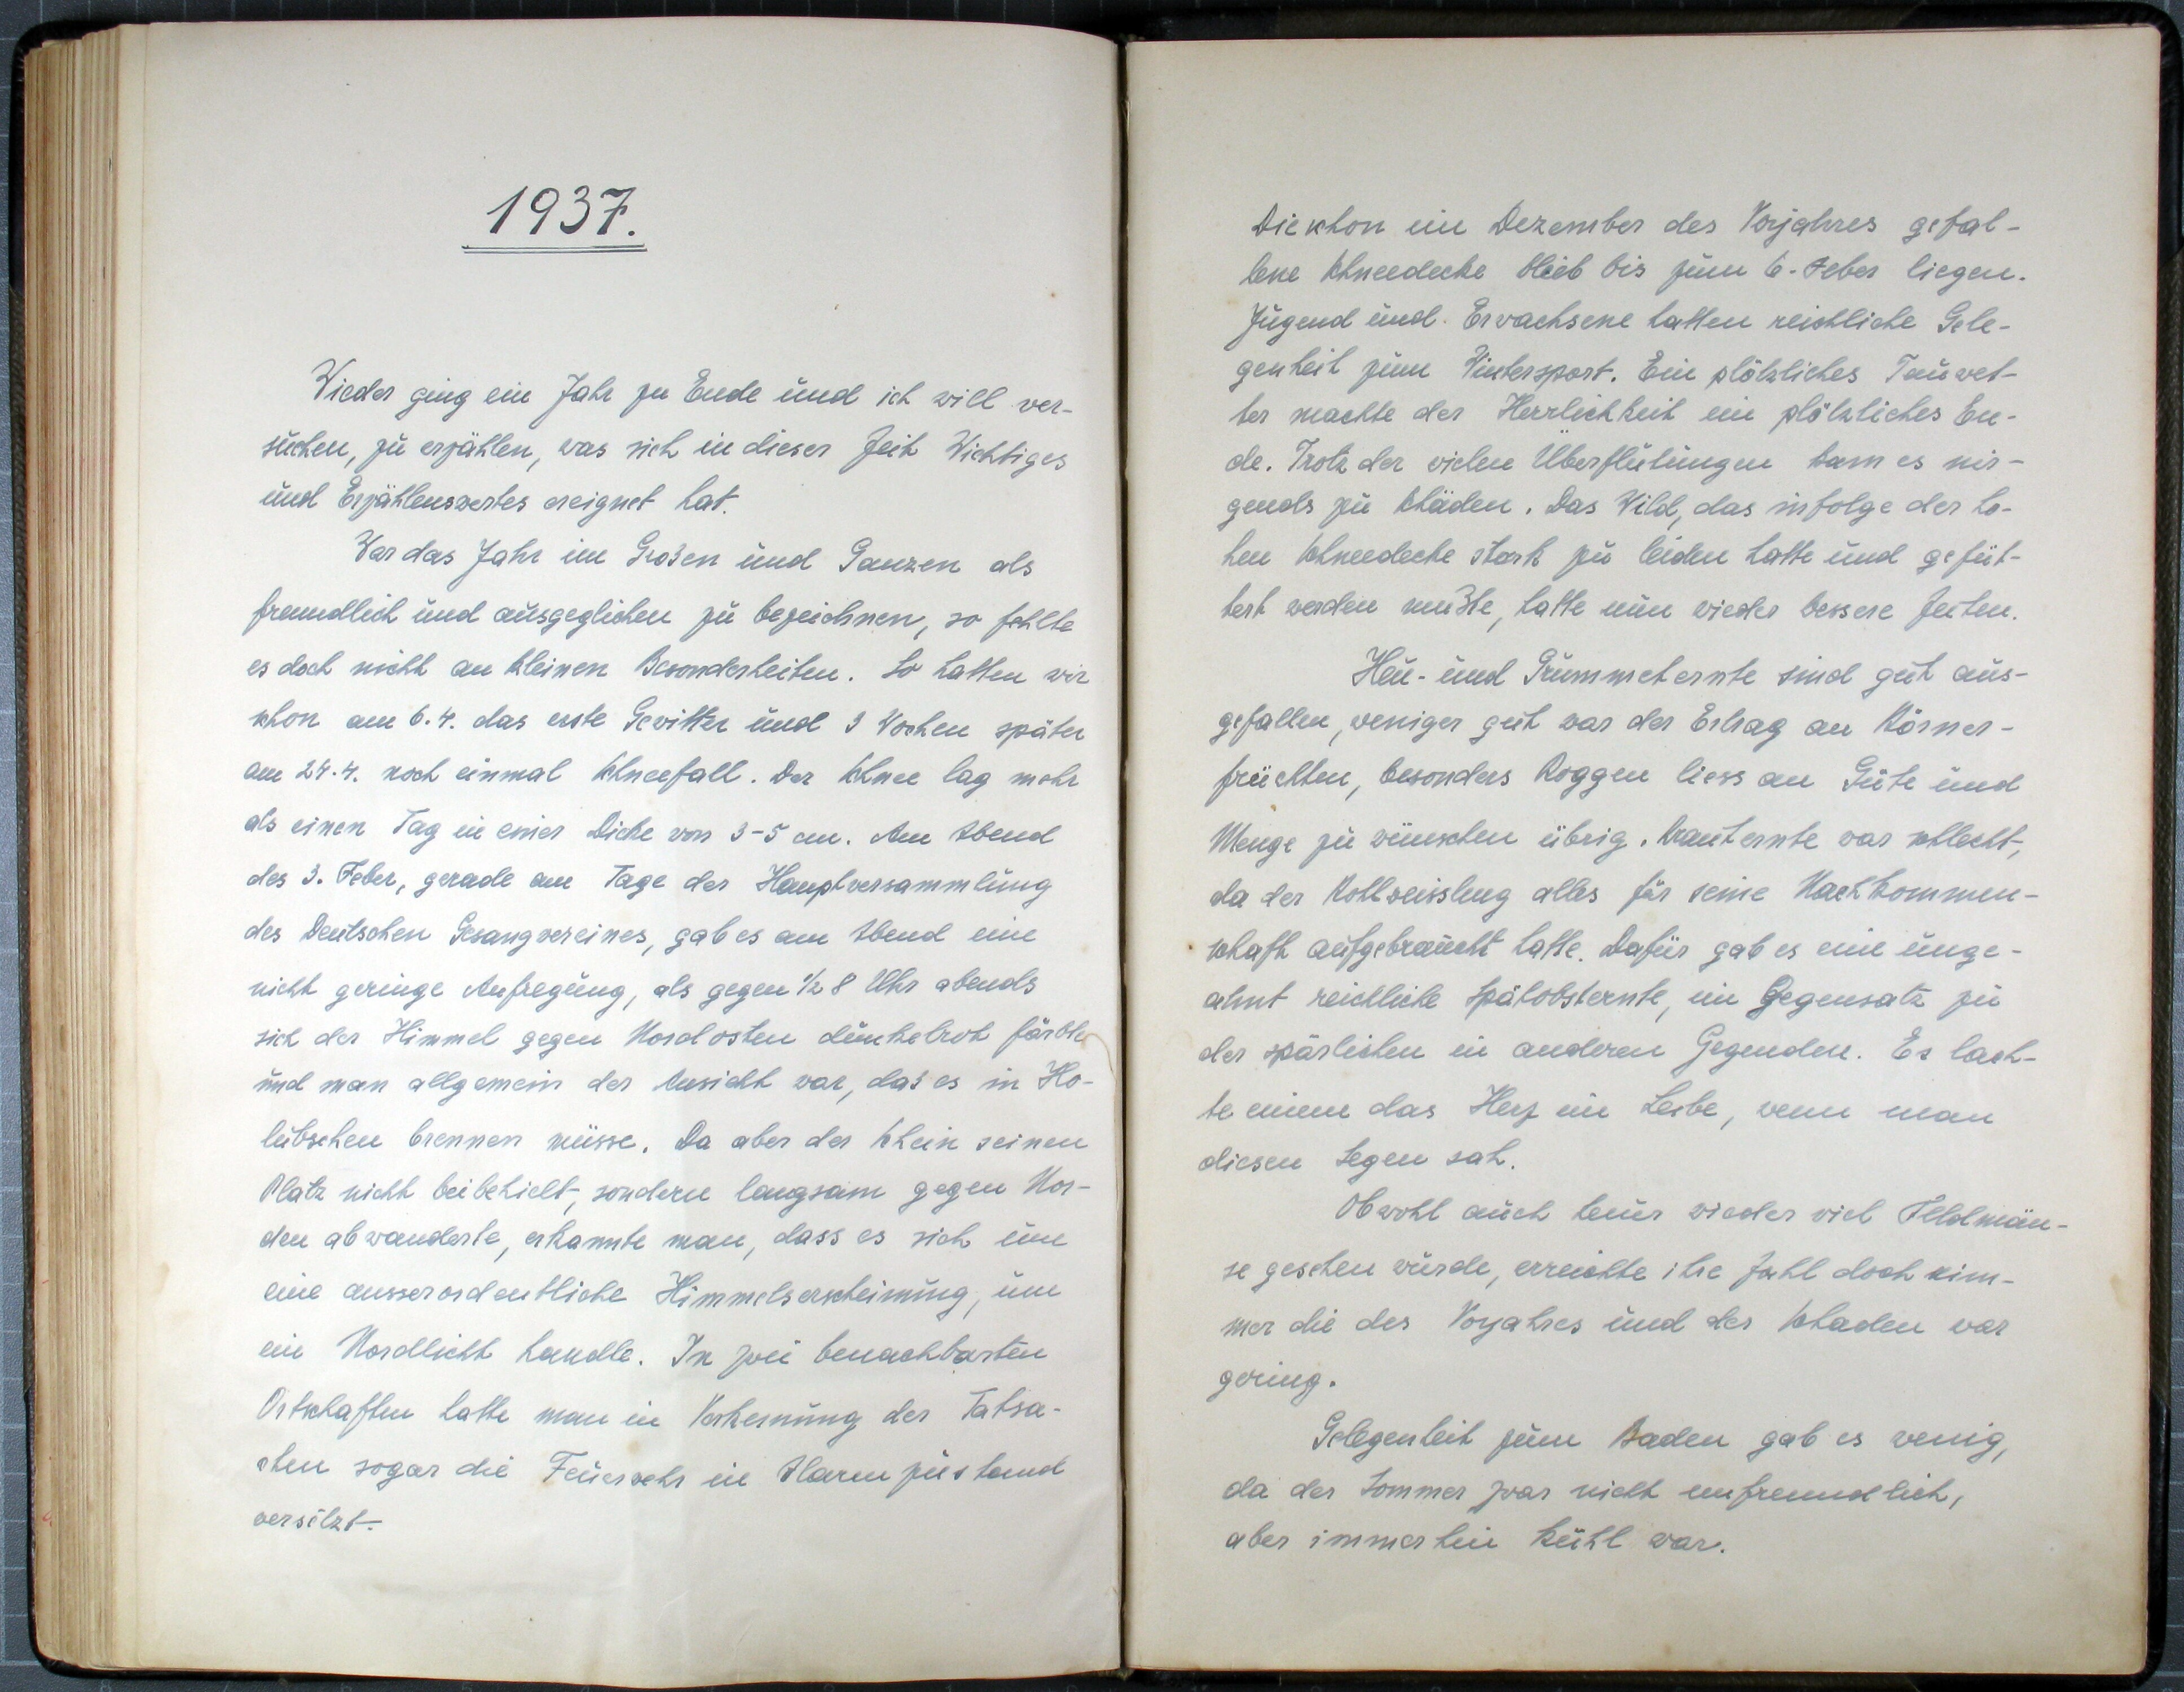 1937.
Wieder ging ein Jahr zu Ende und ich will ver-
suchen, zu erzählen, was sich in dieser Zeit Wichtiges
und Erzählenswertes ereignet hat.
War das Jahr im Großen und Ganzen als
freundlich und ausgeglichen zu bezeichnen, so fehlte
es doch nicht an kleinen Besonderheiten. So hatten wir
schon am 6.4. das erste Gewitter und 3 Wochen später
am 24.4. noch einmal Schneefall. Der Schnee lag mehr
als einen Tag in einer Dicke von 3-5 cm. Am Abend
des 3. Feber, gerade am Tage der Hauptversammlung
des Deutschen Gesangvereines, gab es am Abend eine
nicht geringe Aufregung, als gegen ½ 8 Uhr abends
sich der Himmel gegen Nordosten dunkelrot färbte
und man allgemein der Ansicht war, daß es in Ho-
lubschen brennen müsse. Da aber der Schein seinen
Platz nicht beibehielt, sondern langsam gegen Nor-
den abwanderte, erkannte man, dass es sich um
eine ausserordentliche Himmelserscheinung, um
ein Nordlicht handle. In zwei benachbarten
Ortschaften hatte man in Verkennung der Tatsa-
chen sogar die Feuerwehr in Alarmzustand
versetzt.
Die schon im Dezember des Vorjahres gefal-
lene Schneedecke blieb bis zum 6. Feber liegen.
Jugend und Erwachsene hatten reichliche Gele-
genheit zum Wintersport. Ein plötzliches Tauwet-
ter machte der Herrlichkeit ein plötzliches En-
de. Trotz der vielen Überflutungen kam es nir-
gends zu Schäden. Das Wild, das infolge der ho-
hen Schneedecke stark zu leiden hatte und gefüt-
tert werden mußte, hatte nun wieder bessere Zeiten.
Heu- und Grummeternte sind gut aus-
gefallen, weniger gut war der Ertrag an Körner-
früchten, besonders Roggen liess an Güte und
Menge zu wünschen übrig. Krauternte war schlecht,
da der Kohlweissling alles für seine Nachkommen-
schaft aufgebraucht hatte. Dafür gab es eine unge-
ahnt reichliche Spätobsternte, im Gegensatz zu
der spärlichen in anderen Gegenden. Es lach-
te einem das Herz im Leibe, wenn man
diesen Segen sah.
Obwohl auch heuer wieder viel Feldmäu-
se gesehen wurde, erreichte ihre Zahl doch nim-
mer die des Vorjahres und der Schaden war
gering.
Gelegenheit zum Baden gab es wenig,
da der Sommer zwar nicht unfreundlich,
aber immerhin kühl war.